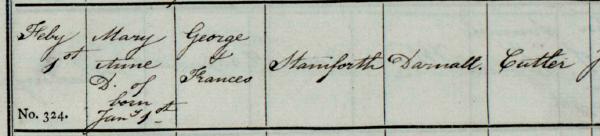 Feby 1st
No. 324.
Mary Anne D. of born Jany 1st
George & Frances
Staniforth
Darnall.
Cutler